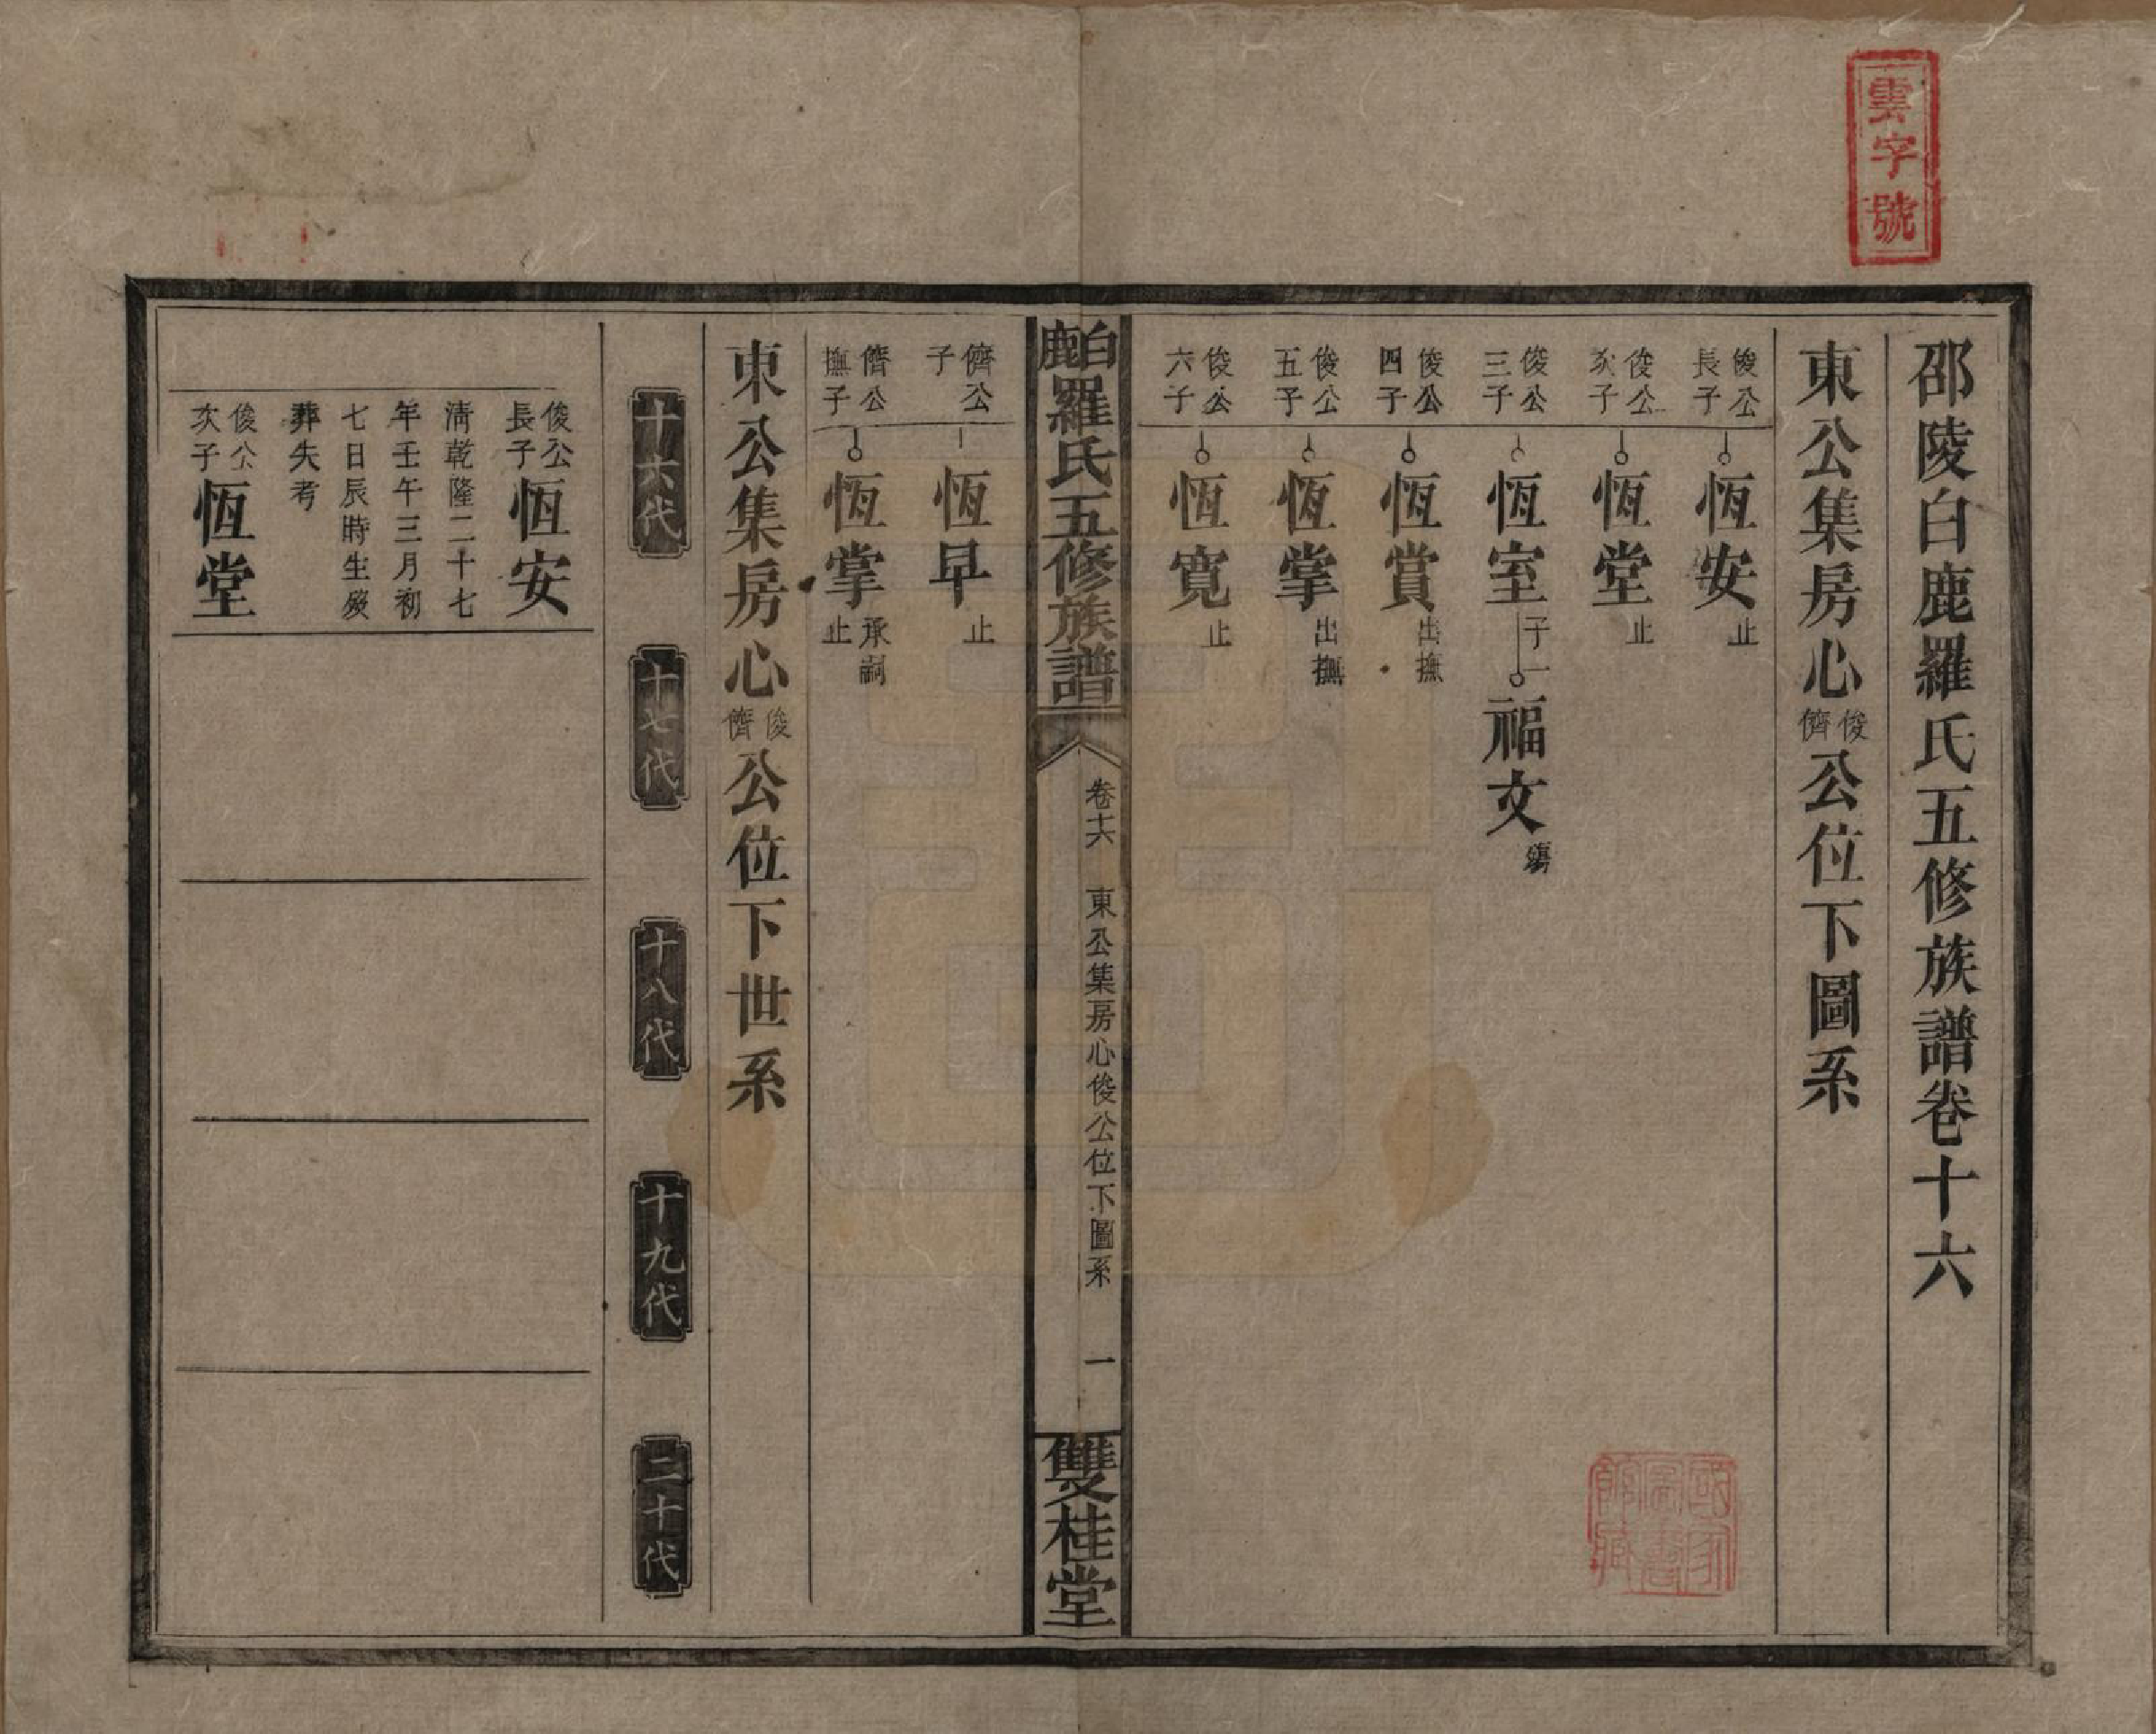 雲字號
邵陵白鹿羅氏五修族譜卷十六
東公集房心俊儕公位下圖系
俊公長子 恆安 止
俊公次子 恆堂 止
俊公三子 恆室 子一 福文
俊公四子 恆賞 出撫
俊公五子 恆掌 出撫
俊公六子 恆寬 止
國家圖書館藏
白鹿羅氏五修族譜
卷十六 東公集房心俊公位下圖系 一
雙桂堂
儕公子 恆早 止
儕公撫子 恆掌 承嗣止
東公集房心俊儕公位下世系
十六代 十七代 十八代 十九代 二十代
俊公長子 恆安
清乾隆二十七
年壬午三月初
七日辰時生歿
葬失考
俊公次子 恆堂